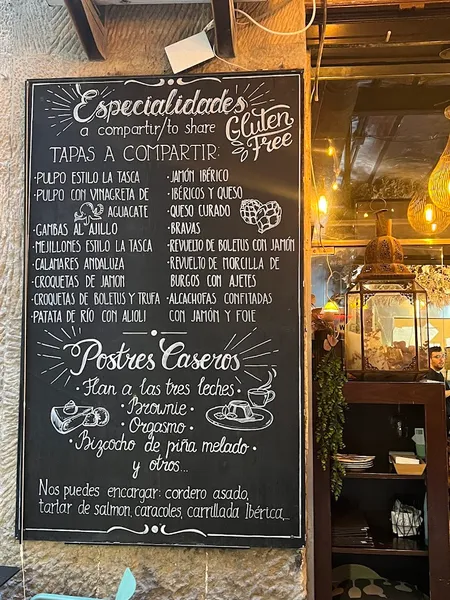 Especialidades
a compartir/to share
Gluten
Free
TAPAS A COMPARTIR:
·PULPO ESTILO LA TASCA
·PULPO CON VINAGRETA DE
AGUACATE
·GAMBAS AL AJILLO
·MEJILLONES ESTILO LA TASCA
·CALAMARES ANDALUZA
·CROQUETAS DE JAMON
·CROQUETAS DE BOLETUS Y TRUFA
·PATATA DE RÍO CON ALIOLI
·JAMÓN IBÉRICO
·IBÉRICOS Y QUESO
·QUESO CURADO
·BRAVAS
·REVUELO DE BOLETUS CON JAMÓN
·REVUELTO DE MORCILLA DE
BURGOS CON AJETES
·ALCACHOFAS CONFITADAS
CON JAMÓN Y FOIE
Postres Caseros
·Flan a las tres leches·
·Brownie·
·Orgasmo·
·Bizcocho de piña melado·
y otros...
Nos puedes encargar: cordero asado,
tartar de salmon, caracoles, carrillada Ibérica,...